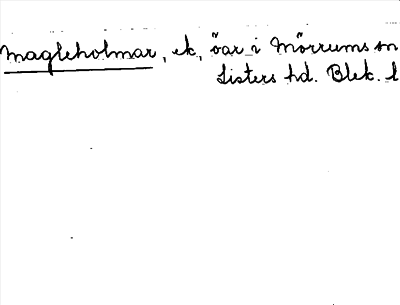 Magleholmar, ek, öar i Mörrums sn
Listers hd. Blek. l